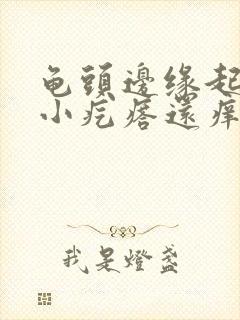 龟頭邊缘起
小疙瘩還痒
我是燈盏